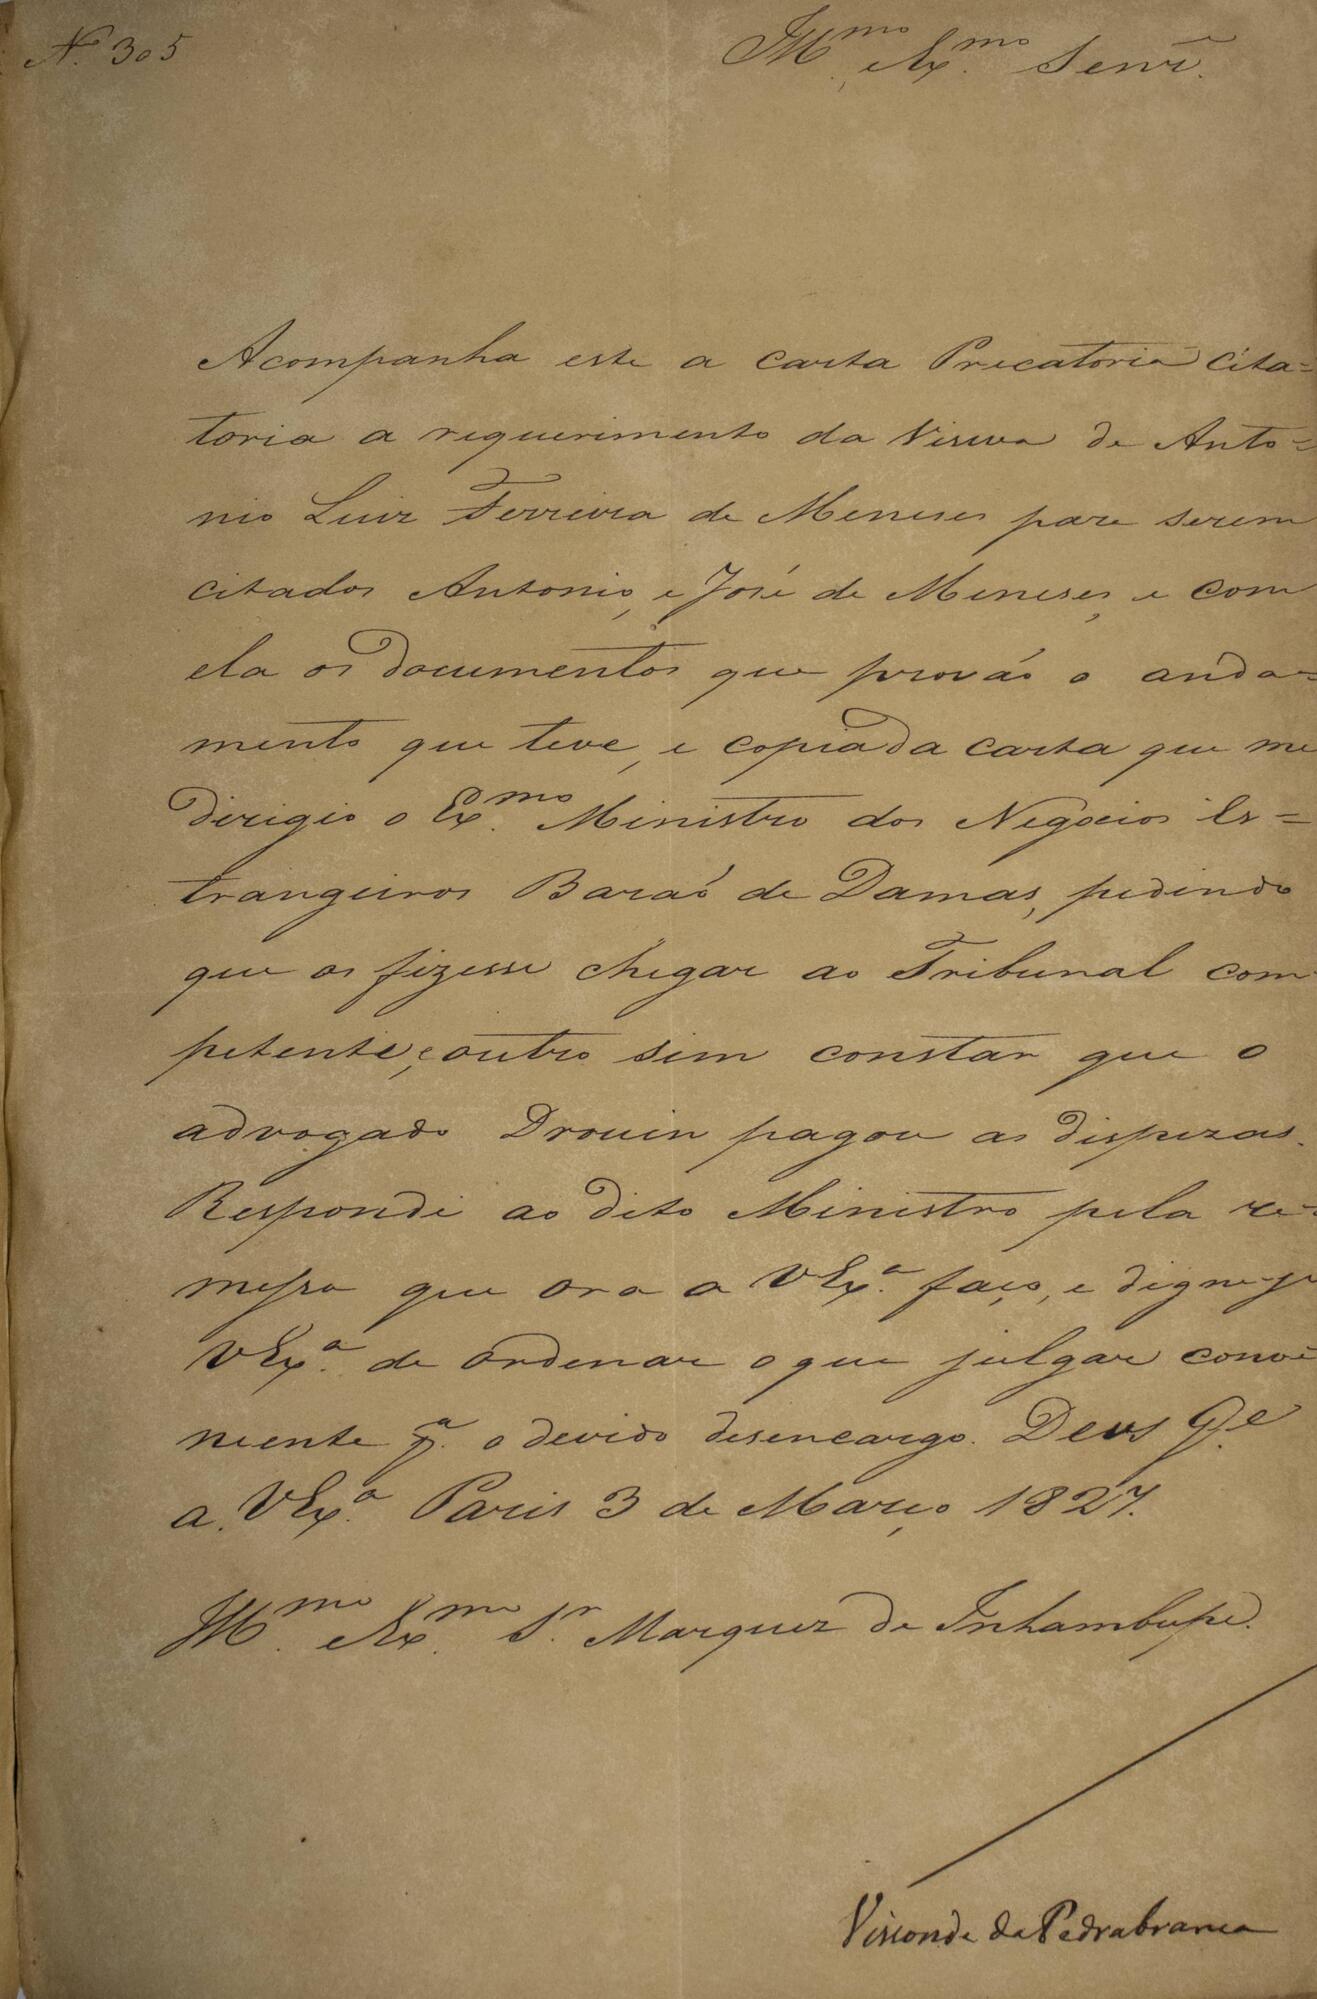 N.º 305
Ill.mo e Ex.mo Senr.
Acompanha este a carta Precatoria Cita=
toria a requerimento da Viuva de Anto=
nio Luiz Ferreira de Meneses para serem
citados Antonio, e José de Meneses, e com
ela os documentos que prováo o anda=
mento que teve, e copia da carta que me
dirigio o Ex.mo Ministro dos Negocios Es=
trangeiros Baraó de Damas, pedindo
que os fizesse chegar ao Tribunal com
petente, e outro sim constar que o
advogado Drouin pagou as dispezas.
Respondi ao dito Ministro pela re=
messa que ora a VEx.a faço, e digne-se
VEx.a de ordenar o que julgar conve
niente p.a o devido desencargo. Deus G.e
a VEx.a Paris 3 de Março 1827.
Ill.mo e Ex.mo S.r Marquez de Inhambupe.
Visconde da Pedrabranca